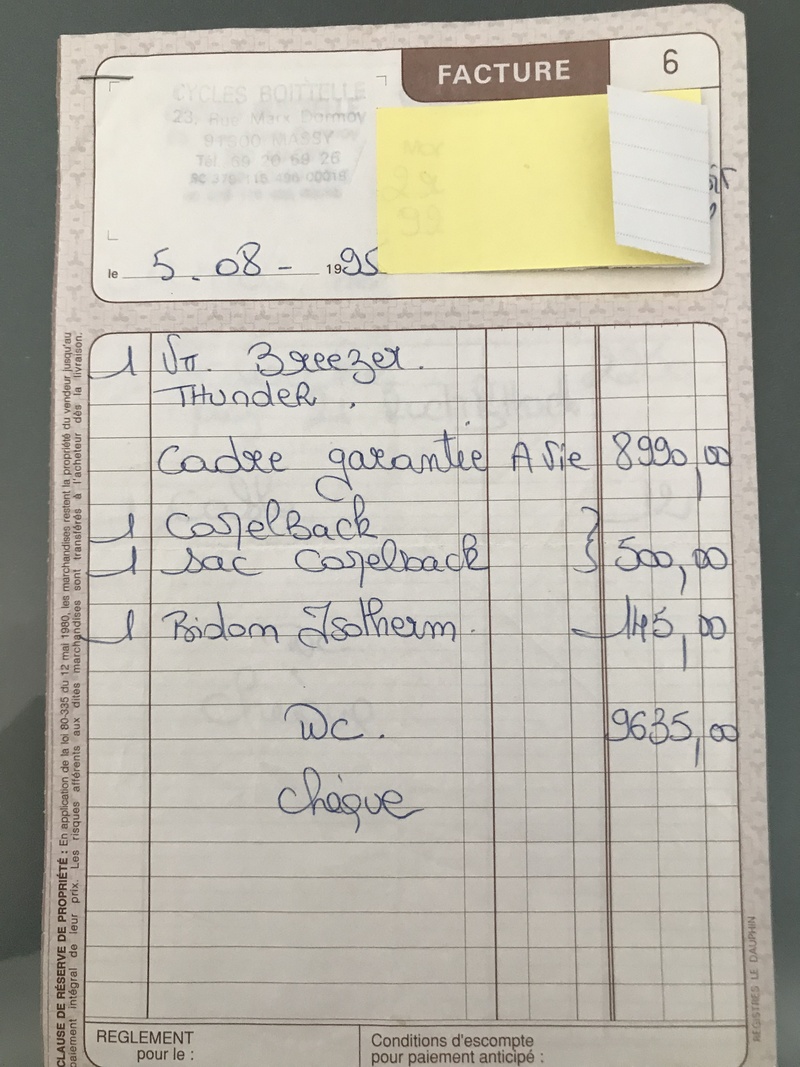 FACTURE 6
CYCLES BOITTELLE
23, Rue Marx Dormoy
91300 MASSY
Tél 69 20 68 26
le 5. 08 - 1995
1 VTT. Breezer.
THUNDER.
Cadre garantie A Vie 8990,00
1 CamelBack
1 Sac Camelback 500,00
1 Bidon Isotherm. 145,00
DC. 9635,00
chèque
REGLEMENT
pour le :
Conditions d'escompte
pour paiement anticipé :
CLAUSE DE RÉSERVE DE PROPRIÉTÉ : En application de la loi 80-335 du 12 mai 1980, les marchandises restent la propriété du vendeur jusqu'au
paiement intégral de leur prix. Les risques afférents aux dites marchandises sont transférés à l'acheteur dès la livraison.
REGISTRES LE DAUPHIN